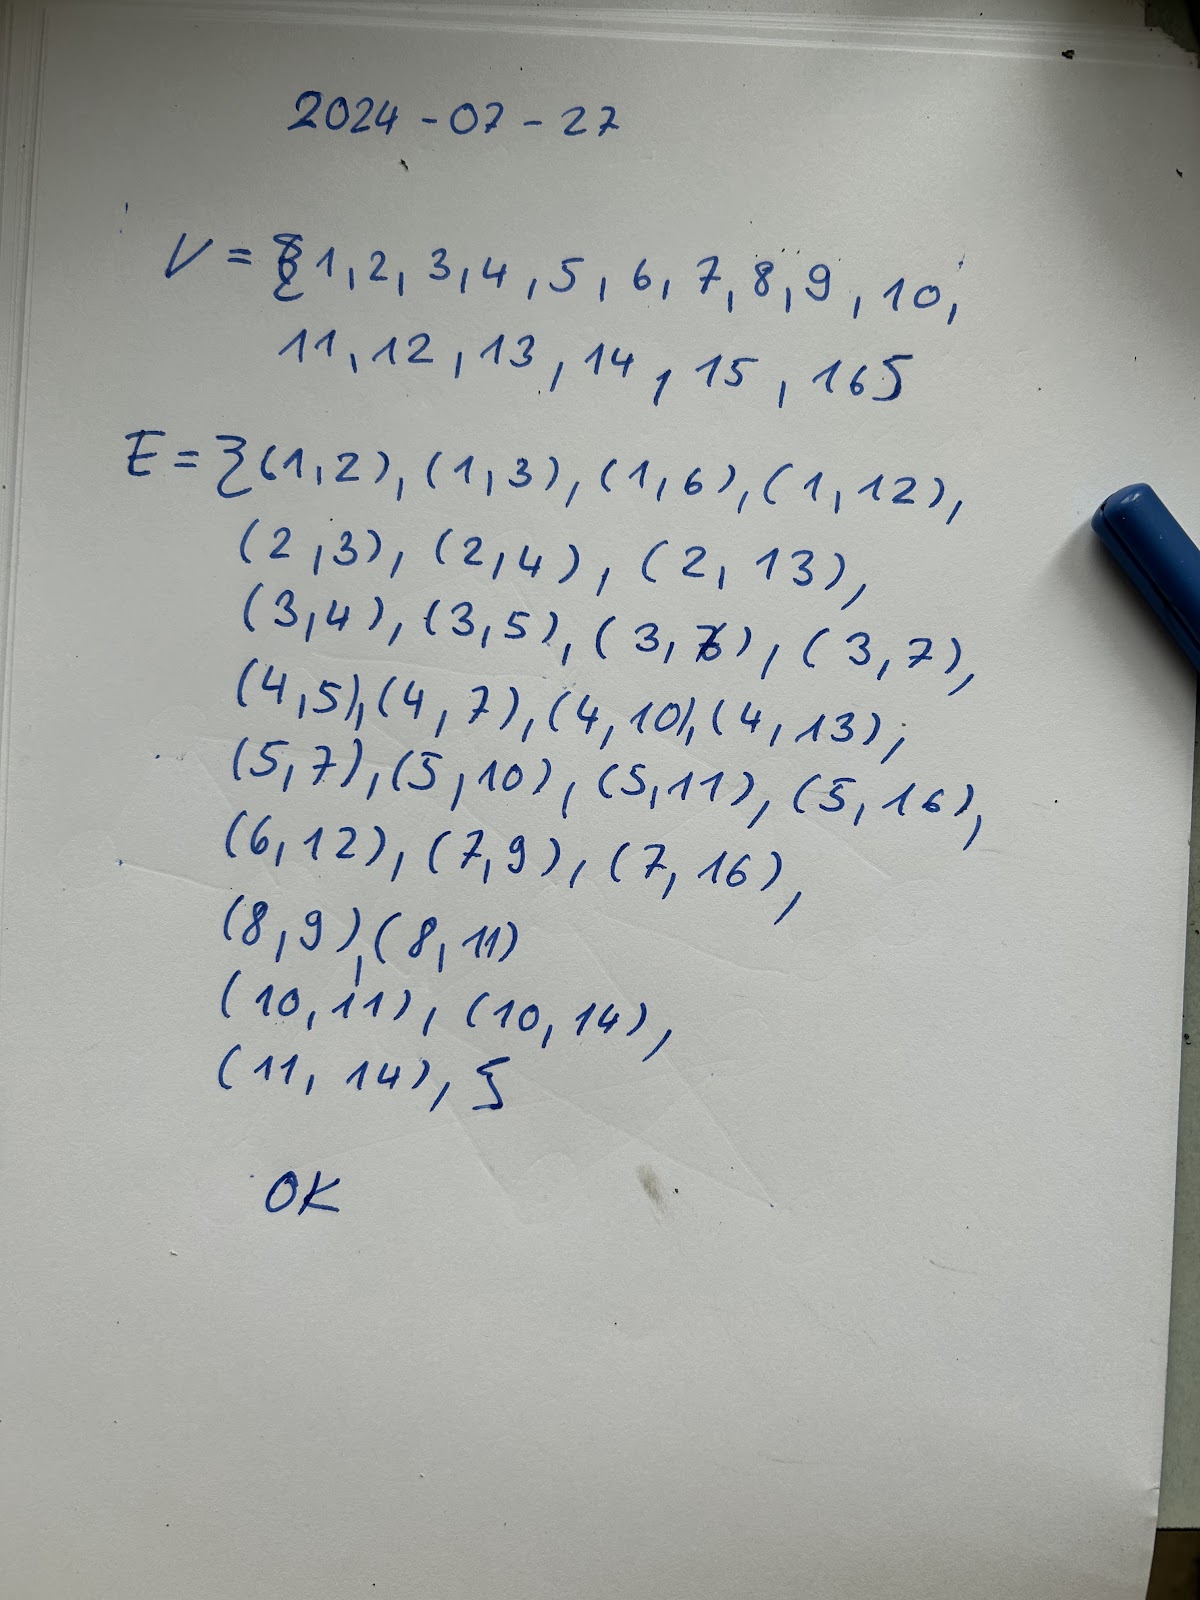 2024-07-27
V = {1, 2, 3, 4, 5, 6, 7, 8, 9, 10,
11, 12, 13, 14, 15, 16}
E = {(1,2), (1,3), (1,6), (1,12),
(2,3), (2,4), (2,13),
(3,4), (3,5), (3,6), (3,7),
(4,5), (4,7), (4,10), (4,13),
(5,7), (5,10), (5,11), (5,16),
(6,12), (7,9), (7,16),
(8,9), (8,11)
(10,11), (10,14),
(11,14), }
OK